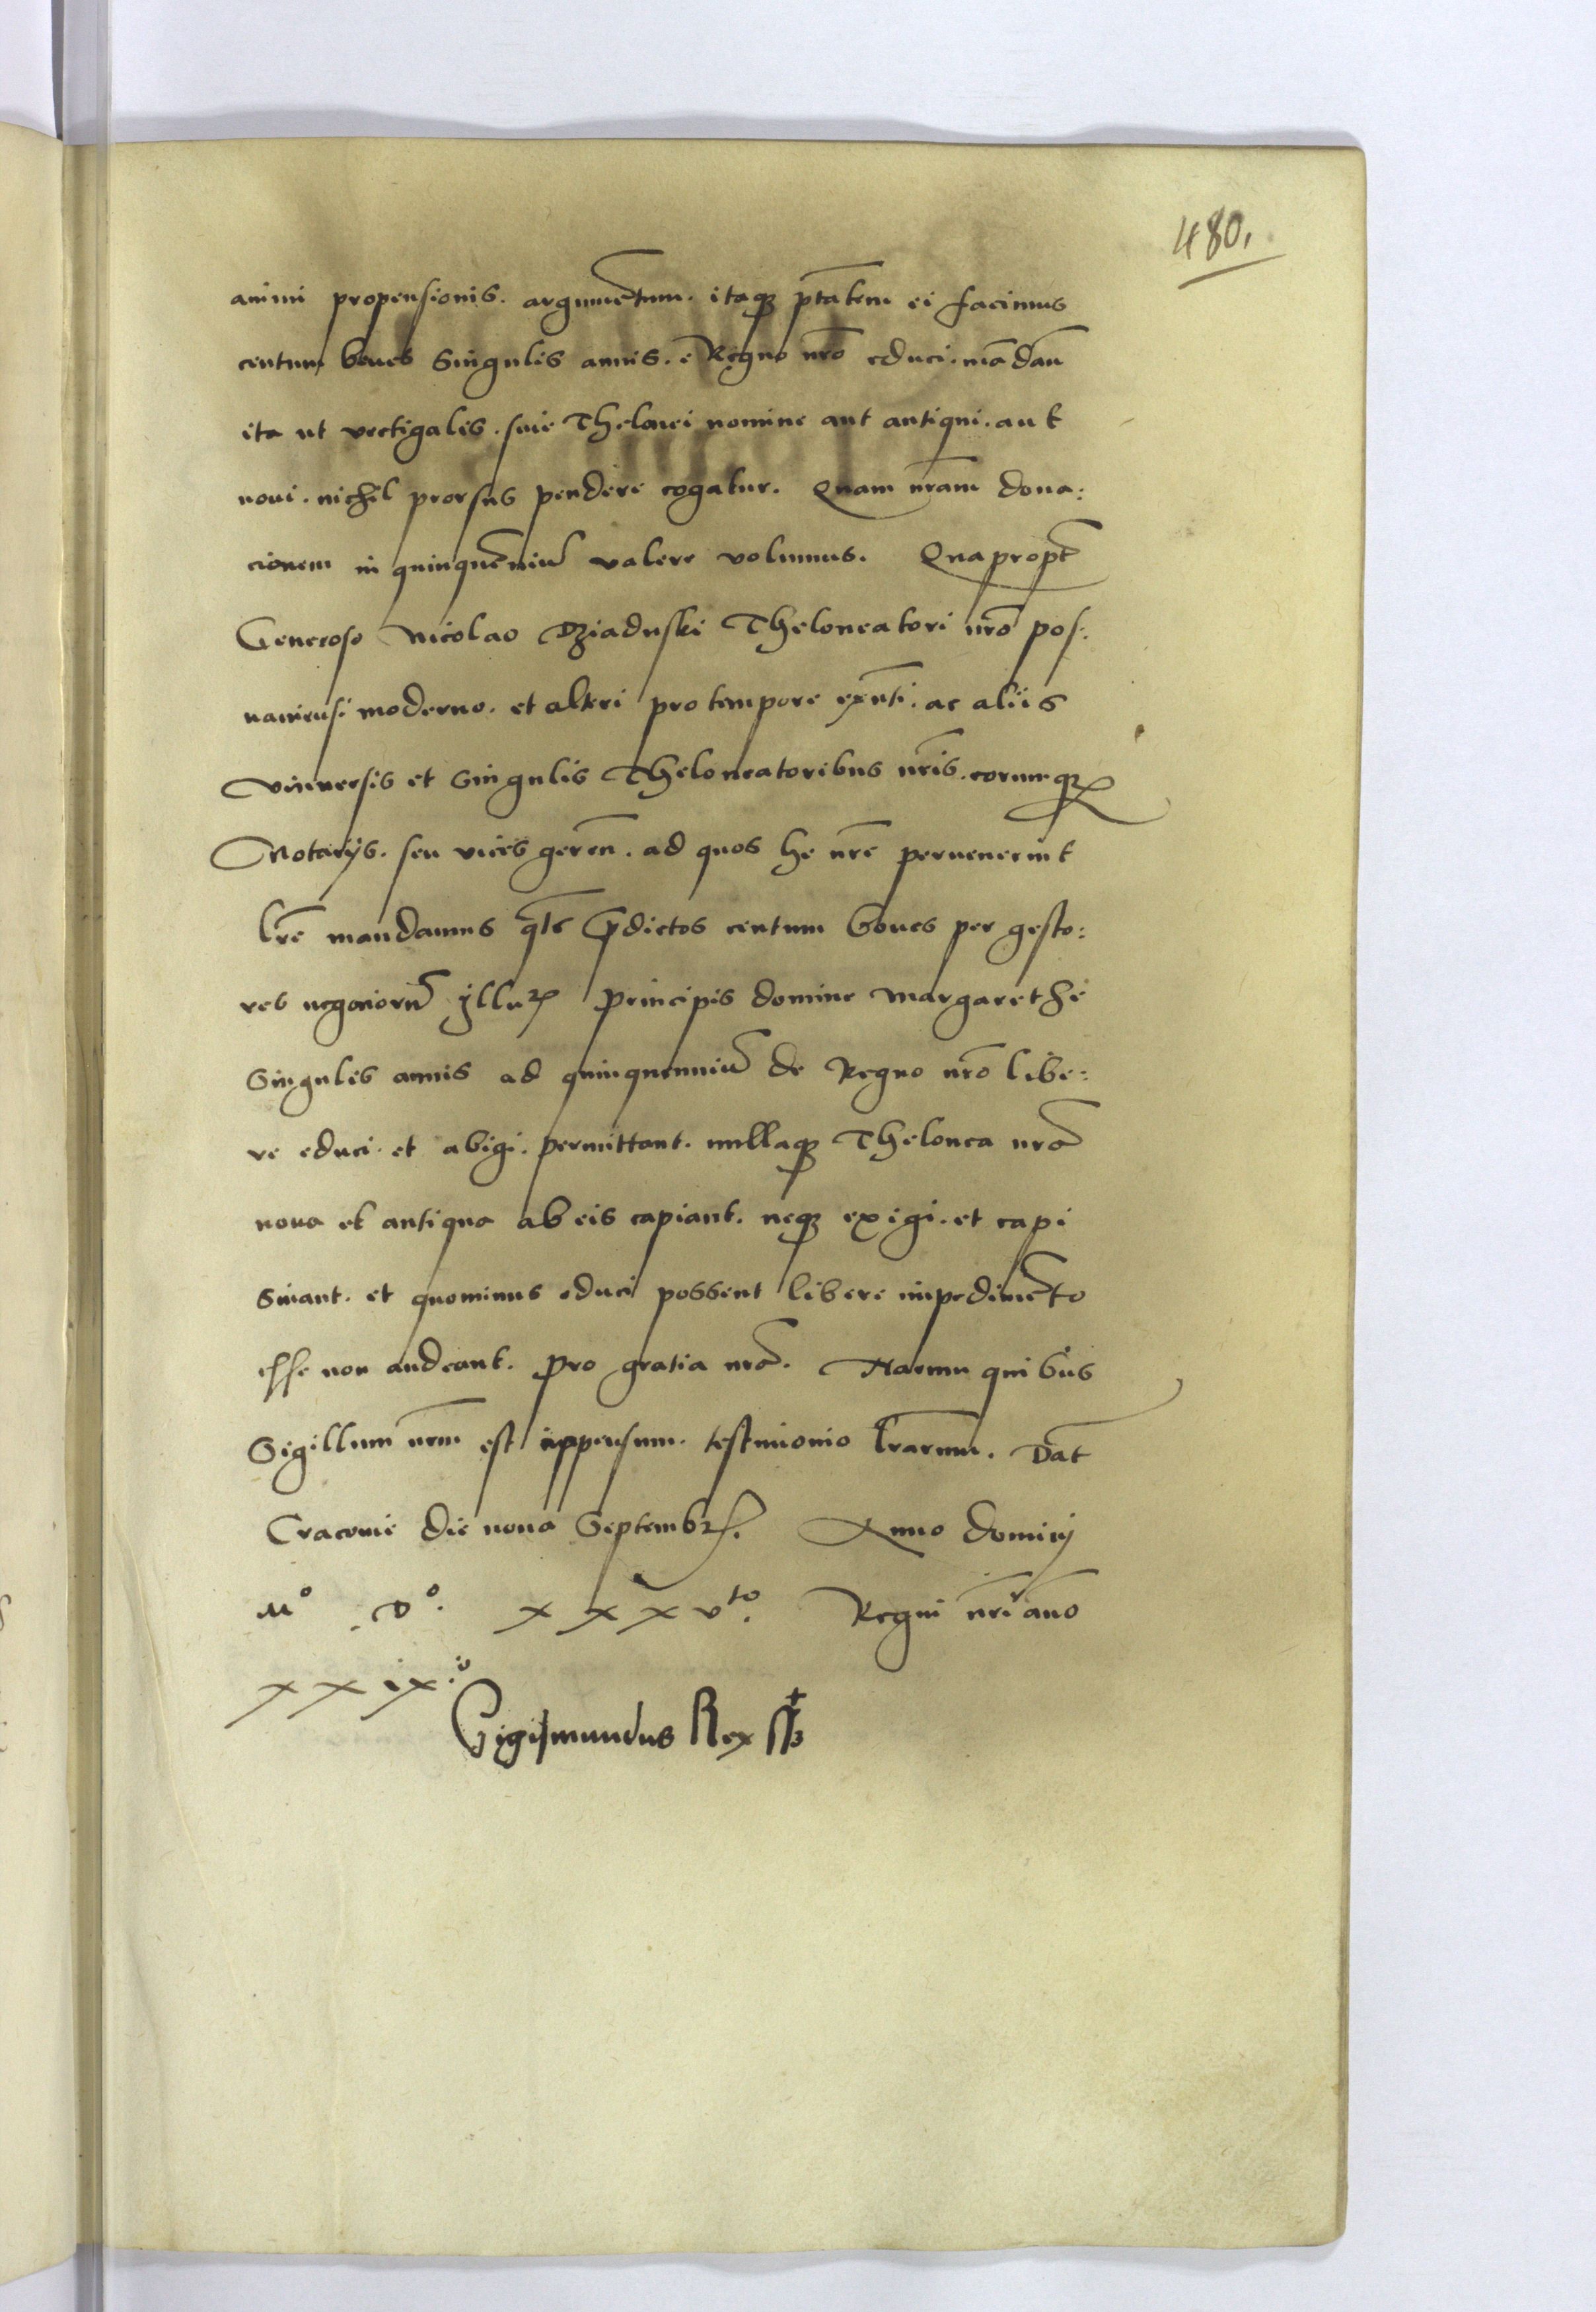 480.
animi propensionis. argumētum. itaqꝫ ptātem ei facimus
centum boues Singulis annis. e Regno nrō educi. mādan̄
ita ut vectigalis. siue Thelonei nomine aut antiqui. aut
noui. nichil prorsus pendere cogatur. Quam nrām dona:
cionem in quinquēniū valere volumus. Quapropt̄
Generoso Nicolao Dziaduski Theloneatori nrō pos:
naniensi moderno. et alteri pro tempore exn̄ti. ac aliis
vniuersis et Singulis Theloneatoribus nrīs. eorumqꝫ
Notarijs. seu vices geren̄. ad quos he nrē peruenerint
lrē mandamus qt̄s p̄dictos centum boues per gesto:
res negociorū Jlluꝛ principis domine Margarethe
Singulis annis ad quinquenniū de Regno nrō libe:
re educi. et abigi. permittant. nullaqꝫ Thelonea nrā
noua et antiqua ab eis capiant. neqꝫ exigi. et capi
Sinant. et quominus educi possent libere impedimēto
esse non audeant. pro gratia nrā. Harum quibus
Sigillum nrm̄ est appensum. testimonio lrārum. Dat̄
Cracouie die nona Septembꝛ. Anno dominj
Mº Dº. xxxvto. Regni nrī anō
xxix.º
Sigismundus Rex sst